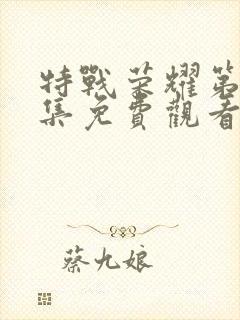 特戰榮耀第
集免費觀看
蔡九娘